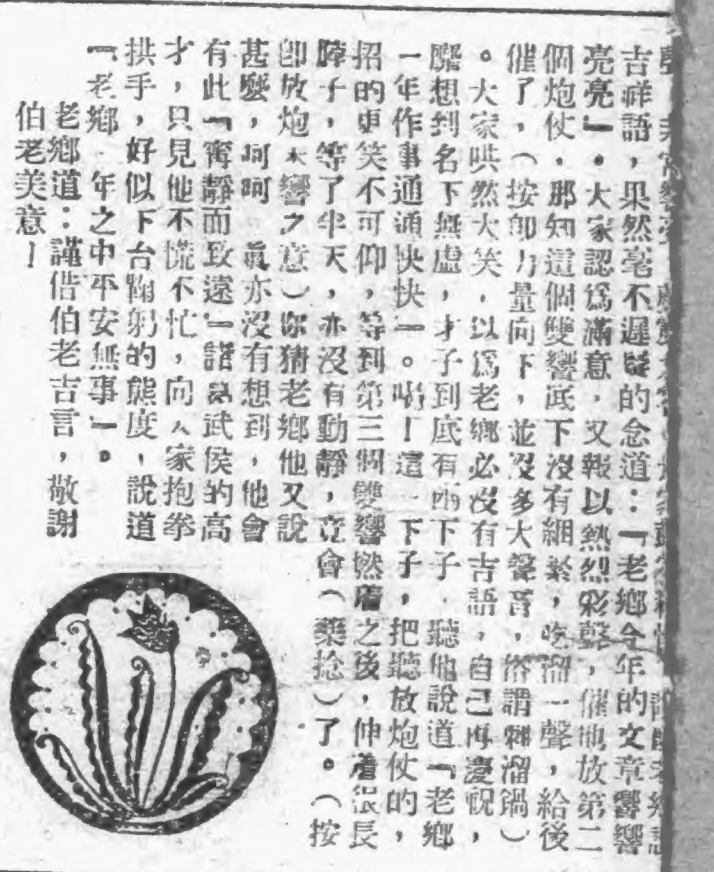 吉祥語，果然毫不遲疑的念道：「老鄉今年的文章響響
亮亮」。大家認爲滿意，又報以熱烈彩聲，催他放第二
個炮仗，那知這個雙響底下沒有綑緊，吃溜一聲，給後
催了，（按卽力量向下，並沒多大聲音，俗謂刺溜鍋）
。大家哄然大笑，以爲老鄉必沒有吉語，自己再慶祝，
靡想到名下無虛，才子到底有兩下子，聽他說道「老鄉
一年作事通通快快」。喝！這一下子，把聽放炮仗的，
招的更笑不可仰，等到第三個雙響燃着之後，伸着很長
脖子，等了半天，亦沒有動靜，竟會（藥捻）了。（按
卽放炮未響之意）你猜老鄉他又說
甚麼，呵呵 眞亦沒有想到，他會
有此「寗靜而致遠」諸葛武侯的高
才，只見他不慌不忙，向大家抱拳
拱手，好似下台鞠躬的態度，說道
「老鄉一年之中平安無事」。
老鄉道：謹借伯老吉言，敬謝
伯老美意！